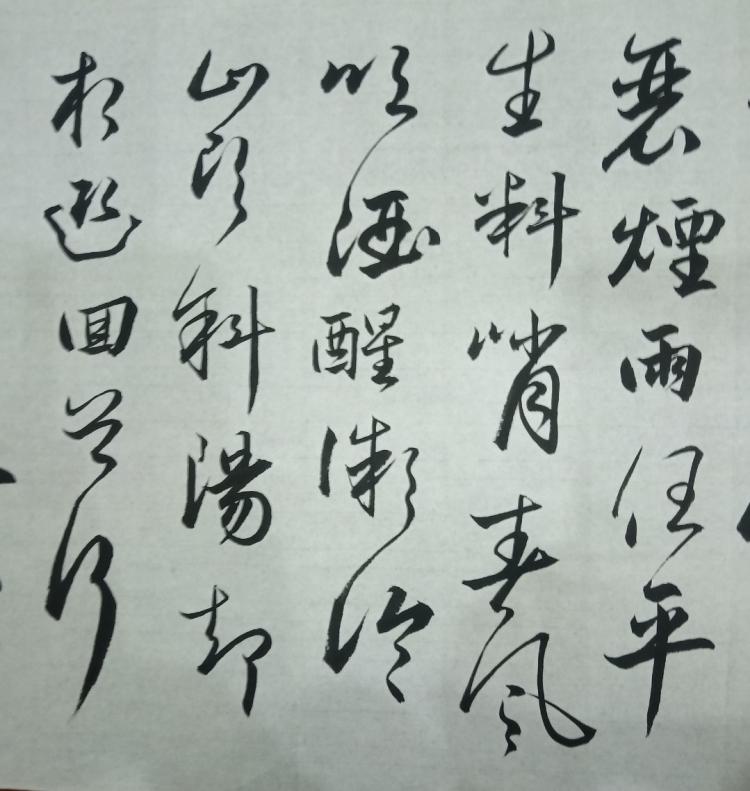 蓑煙雨任平
生料峭春風
吹酒醒微冷
山頭斜陽卻
相迎回首向